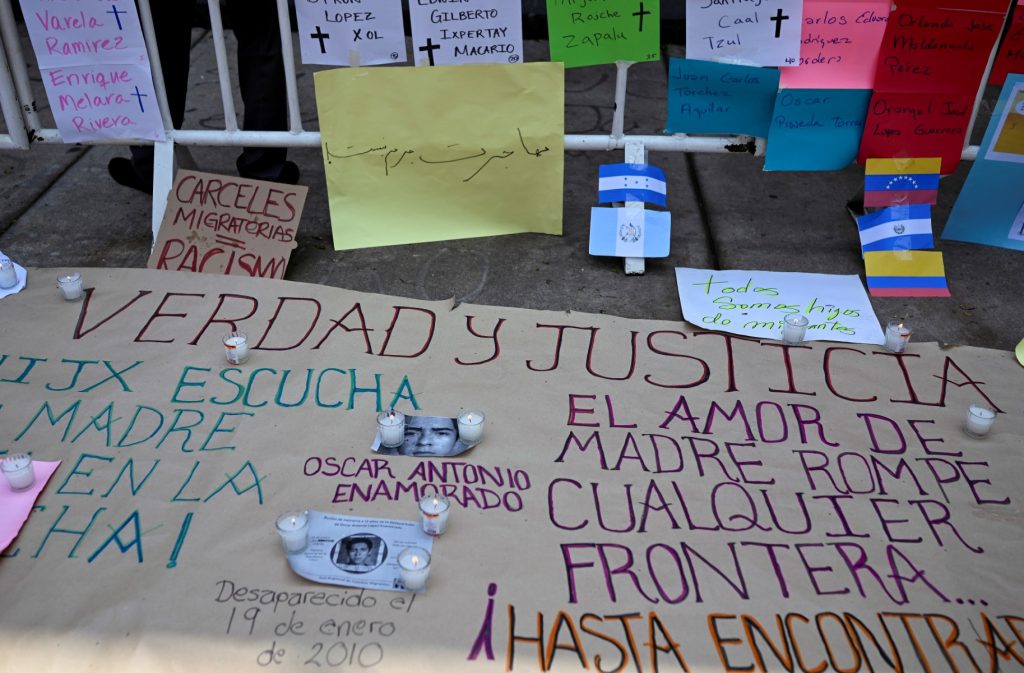 Varela
Ramirez
Enrique
Melara
Rivera
LOPEZ
XOL
GILBERTO
IXPERTAY
MACARIO
Zapalu
Caal
Tzul
Juan Carlos
Aguilar
Carlos
Oscar
Orlando Jose
Maldonado
Pérez
Orangel Jose
Lopez Guerrero
مهاجرت جرم نیست!
CARCELES
MIGRATORIAS
=
RACISM
Todos
Somos hijos
de migrantes
VERDAD Y JUSTICIA
ESCUCHA
MADRE
EN LA
CHA!
OSCAR ANTONIO
ENAMORADO
Desaparecido el
19 de enero
de 2010
EL AMOR DE
MADRE ROMPE
CUALQUIER
FRONTERA...
¡HASTA ENCONTRAR